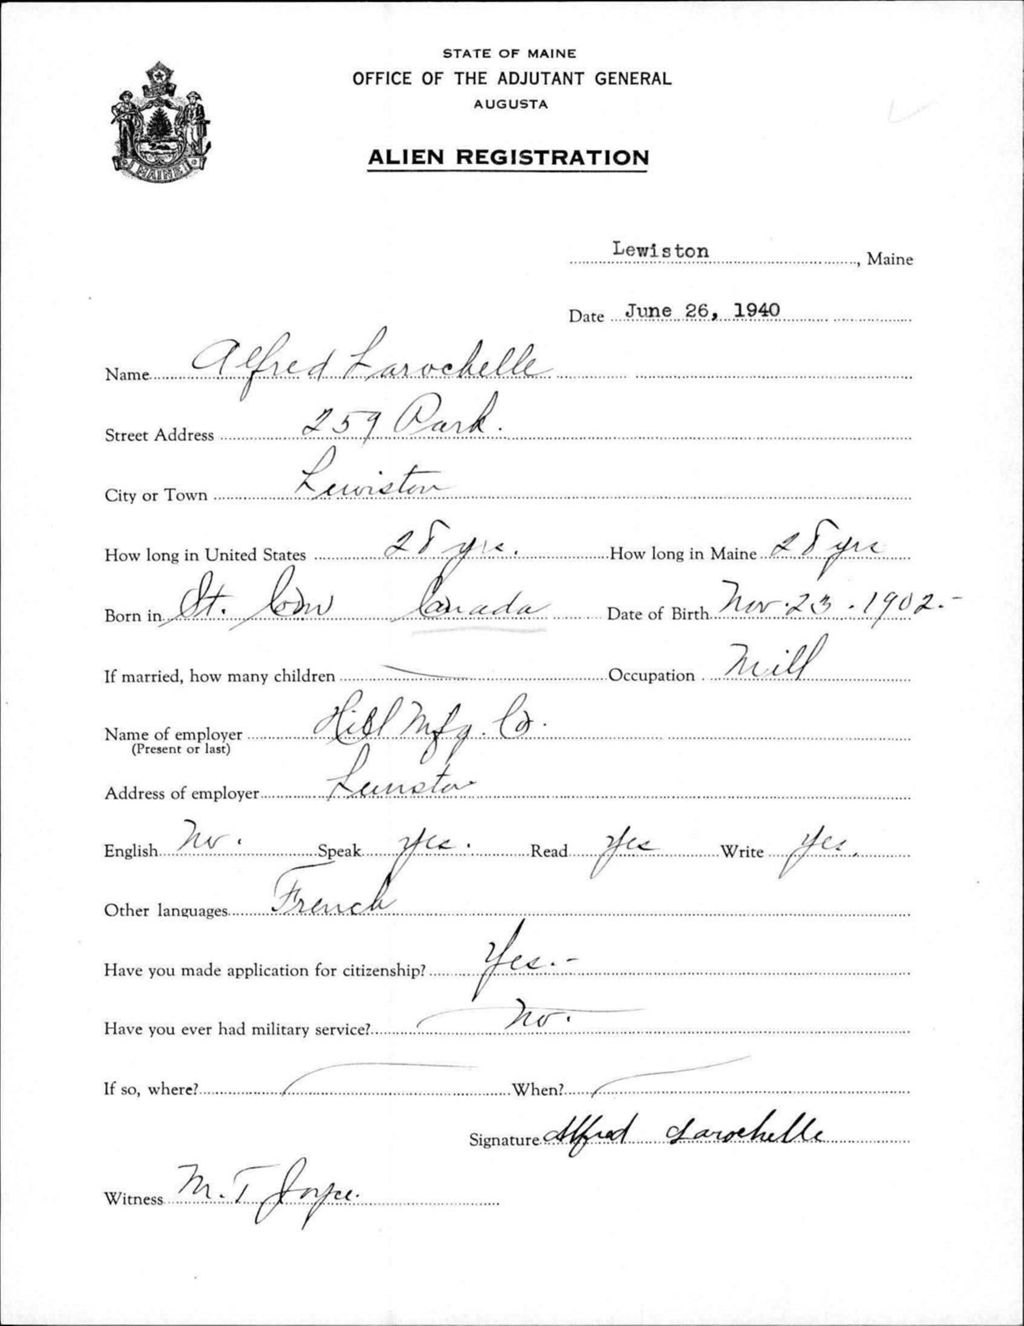 STATE OF MAINE
OFFICE OF THE ADJUTANT GENERAL
AUGUSTA
ALIEN REGISTRATION
MAINE
Lewiston, Maine
Date June 26, 1940
Name Alfred Larochelle
Street Address 259 Park.
City or Town Lewiston
How long in United States 28 yrs. How long in Maine 28 yrs
Born in St. Canada Date of Birth Nov. 23. 1902.-
If married, how many children Occupation Mill
Name of employer Hill Mfg. Co.
(Present or last)
Address of employer Lewiston
English No. Speak yes. Read Yes Write Yes.
Other languages French
Have you made application for citizenship? Yes.-
Have you ever had military service? No.
If so, where? When?
Signature Alfred Larochelle
Witness M. T Joyce.